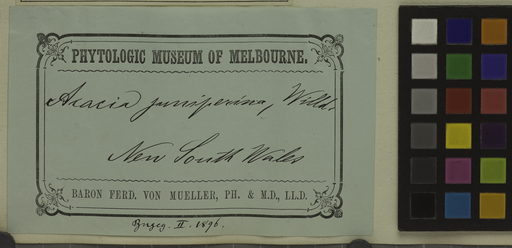 PHYTOLOGIC MUSEUM OF MELBOURNE.
Acacia juniperina, Willd.
New South Wales
BARON FERD. VON MUELLER, PH. & M.D., LL.D.
II. 1896.